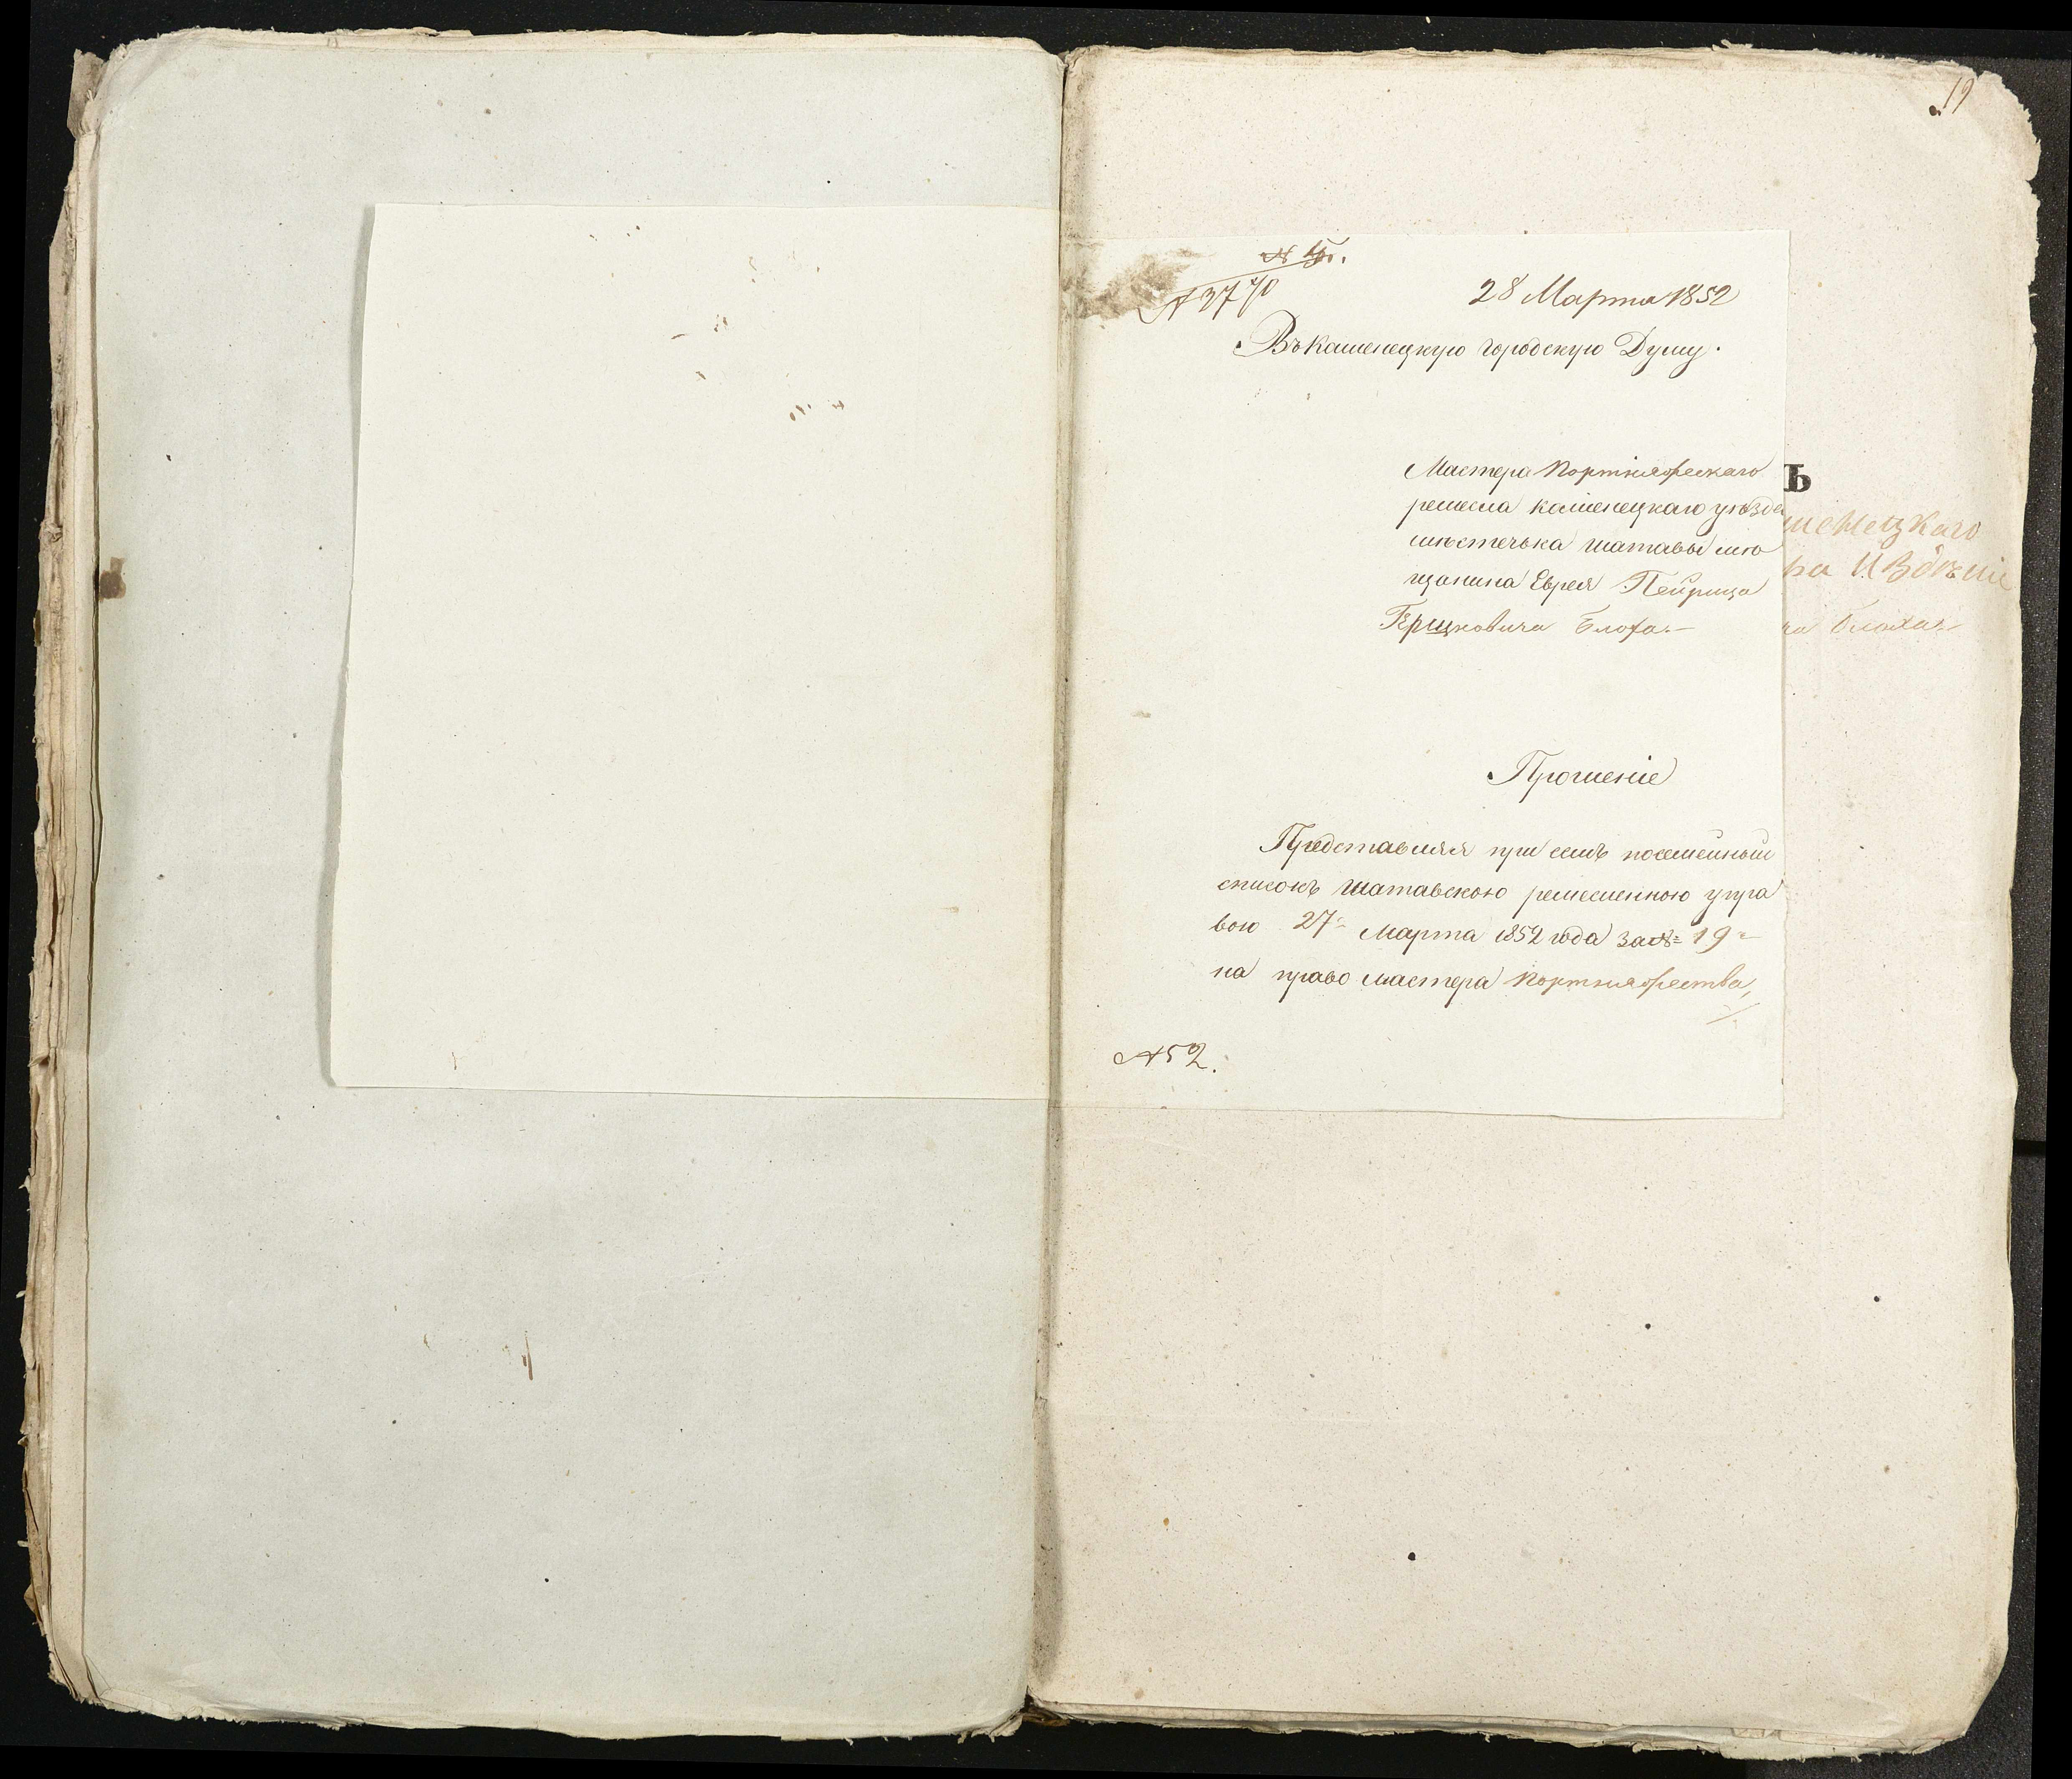 19
№ 5.
№ 3770
28 Марта 1852
Въ Каменецкую городскую Думу.
Ъ
Мастера Портняжескаго
ремесла каменецкаго уѣзда
мѣстечька шатавы мѣ
щанина Еврея Пейрица
Гершковича Блоха.
менецкаго
ка Изъ
ча Блоха.
Прошеніе
Представляя при семъ посемейный
списокъ шатавскою ремесленною упра
вою 27 Марта 1852 года за № 19
на право мастера портняжества,
№ 52.